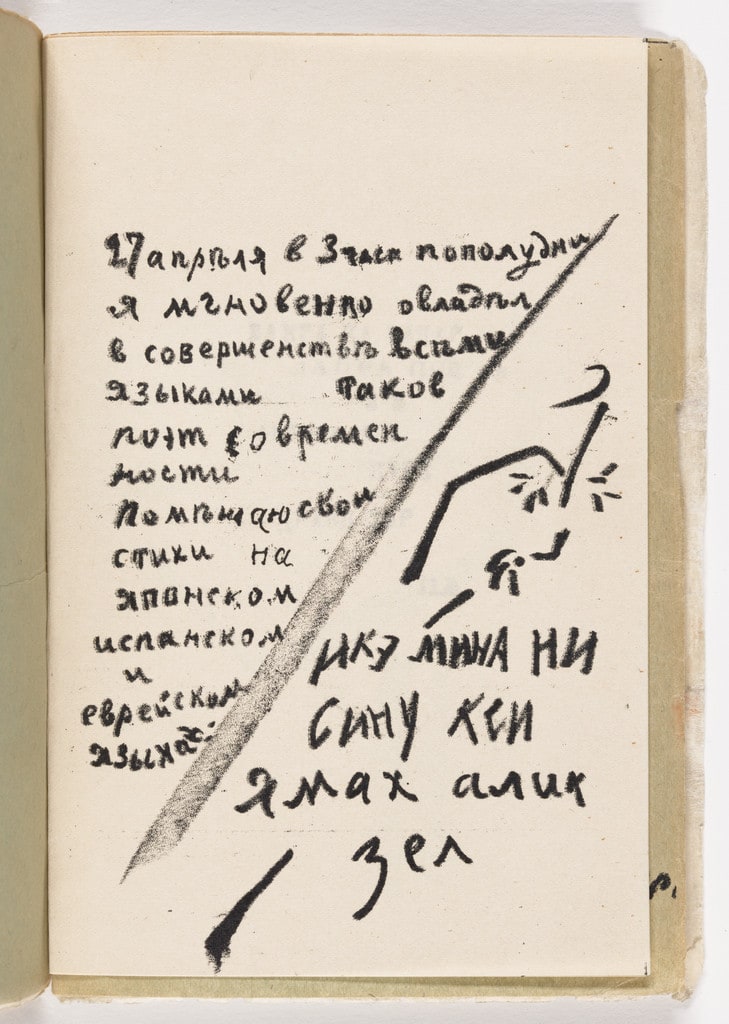 27 апрѣля в 3 часа пополудни
я мгновенно овладѣл
в совершенствѣ всѣми
языками Таков
поэт современ
ности
Помѣщаю свои
стихи на
японском
испанском
и
еврейском
языках:
икэ мина ни
сину кси
ямах алик
зел